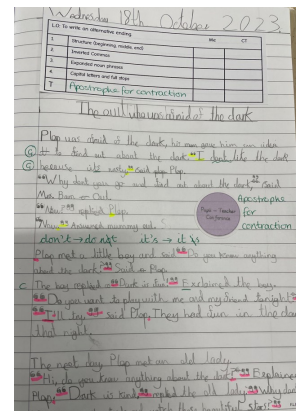 Wednesday 18th October 2023.
L.O: To write an alternative ending
Me CT
1. Structure (beginning, middle, end)
2. Inverted Commas
3. Expanded noun phrases
4. Capital letters and full stops
T Apostrophe for contraction
The owl who was afraid of the dark
Plop was afraid of the dark, his mum gave him an idea
to find out about the dark "I don't like the dark
because its nasty" said Plop.
"Why dont you go and find out about the dark," Said
Mrs Barn - Owl.
"Now?" replied Plop.
"Now" Answered mummy owl.
Apostrophe for contraction
Pupil - Teacher Conference
don't → do not it's → it is
Plop met a little boy and said "Do you know anything
about the dark?" Said Plop.
The boy replied "Dark is fun!" Explained the boy.
"Do you want to play with me and my friend tonight"
"I'll try" said Plop, They had fun in the
that night.
The next day Plop met an old lady.
"Hi, do you know anything about the dark?" Explained
Plop. "Dark is kind" replied the old lady. "Why